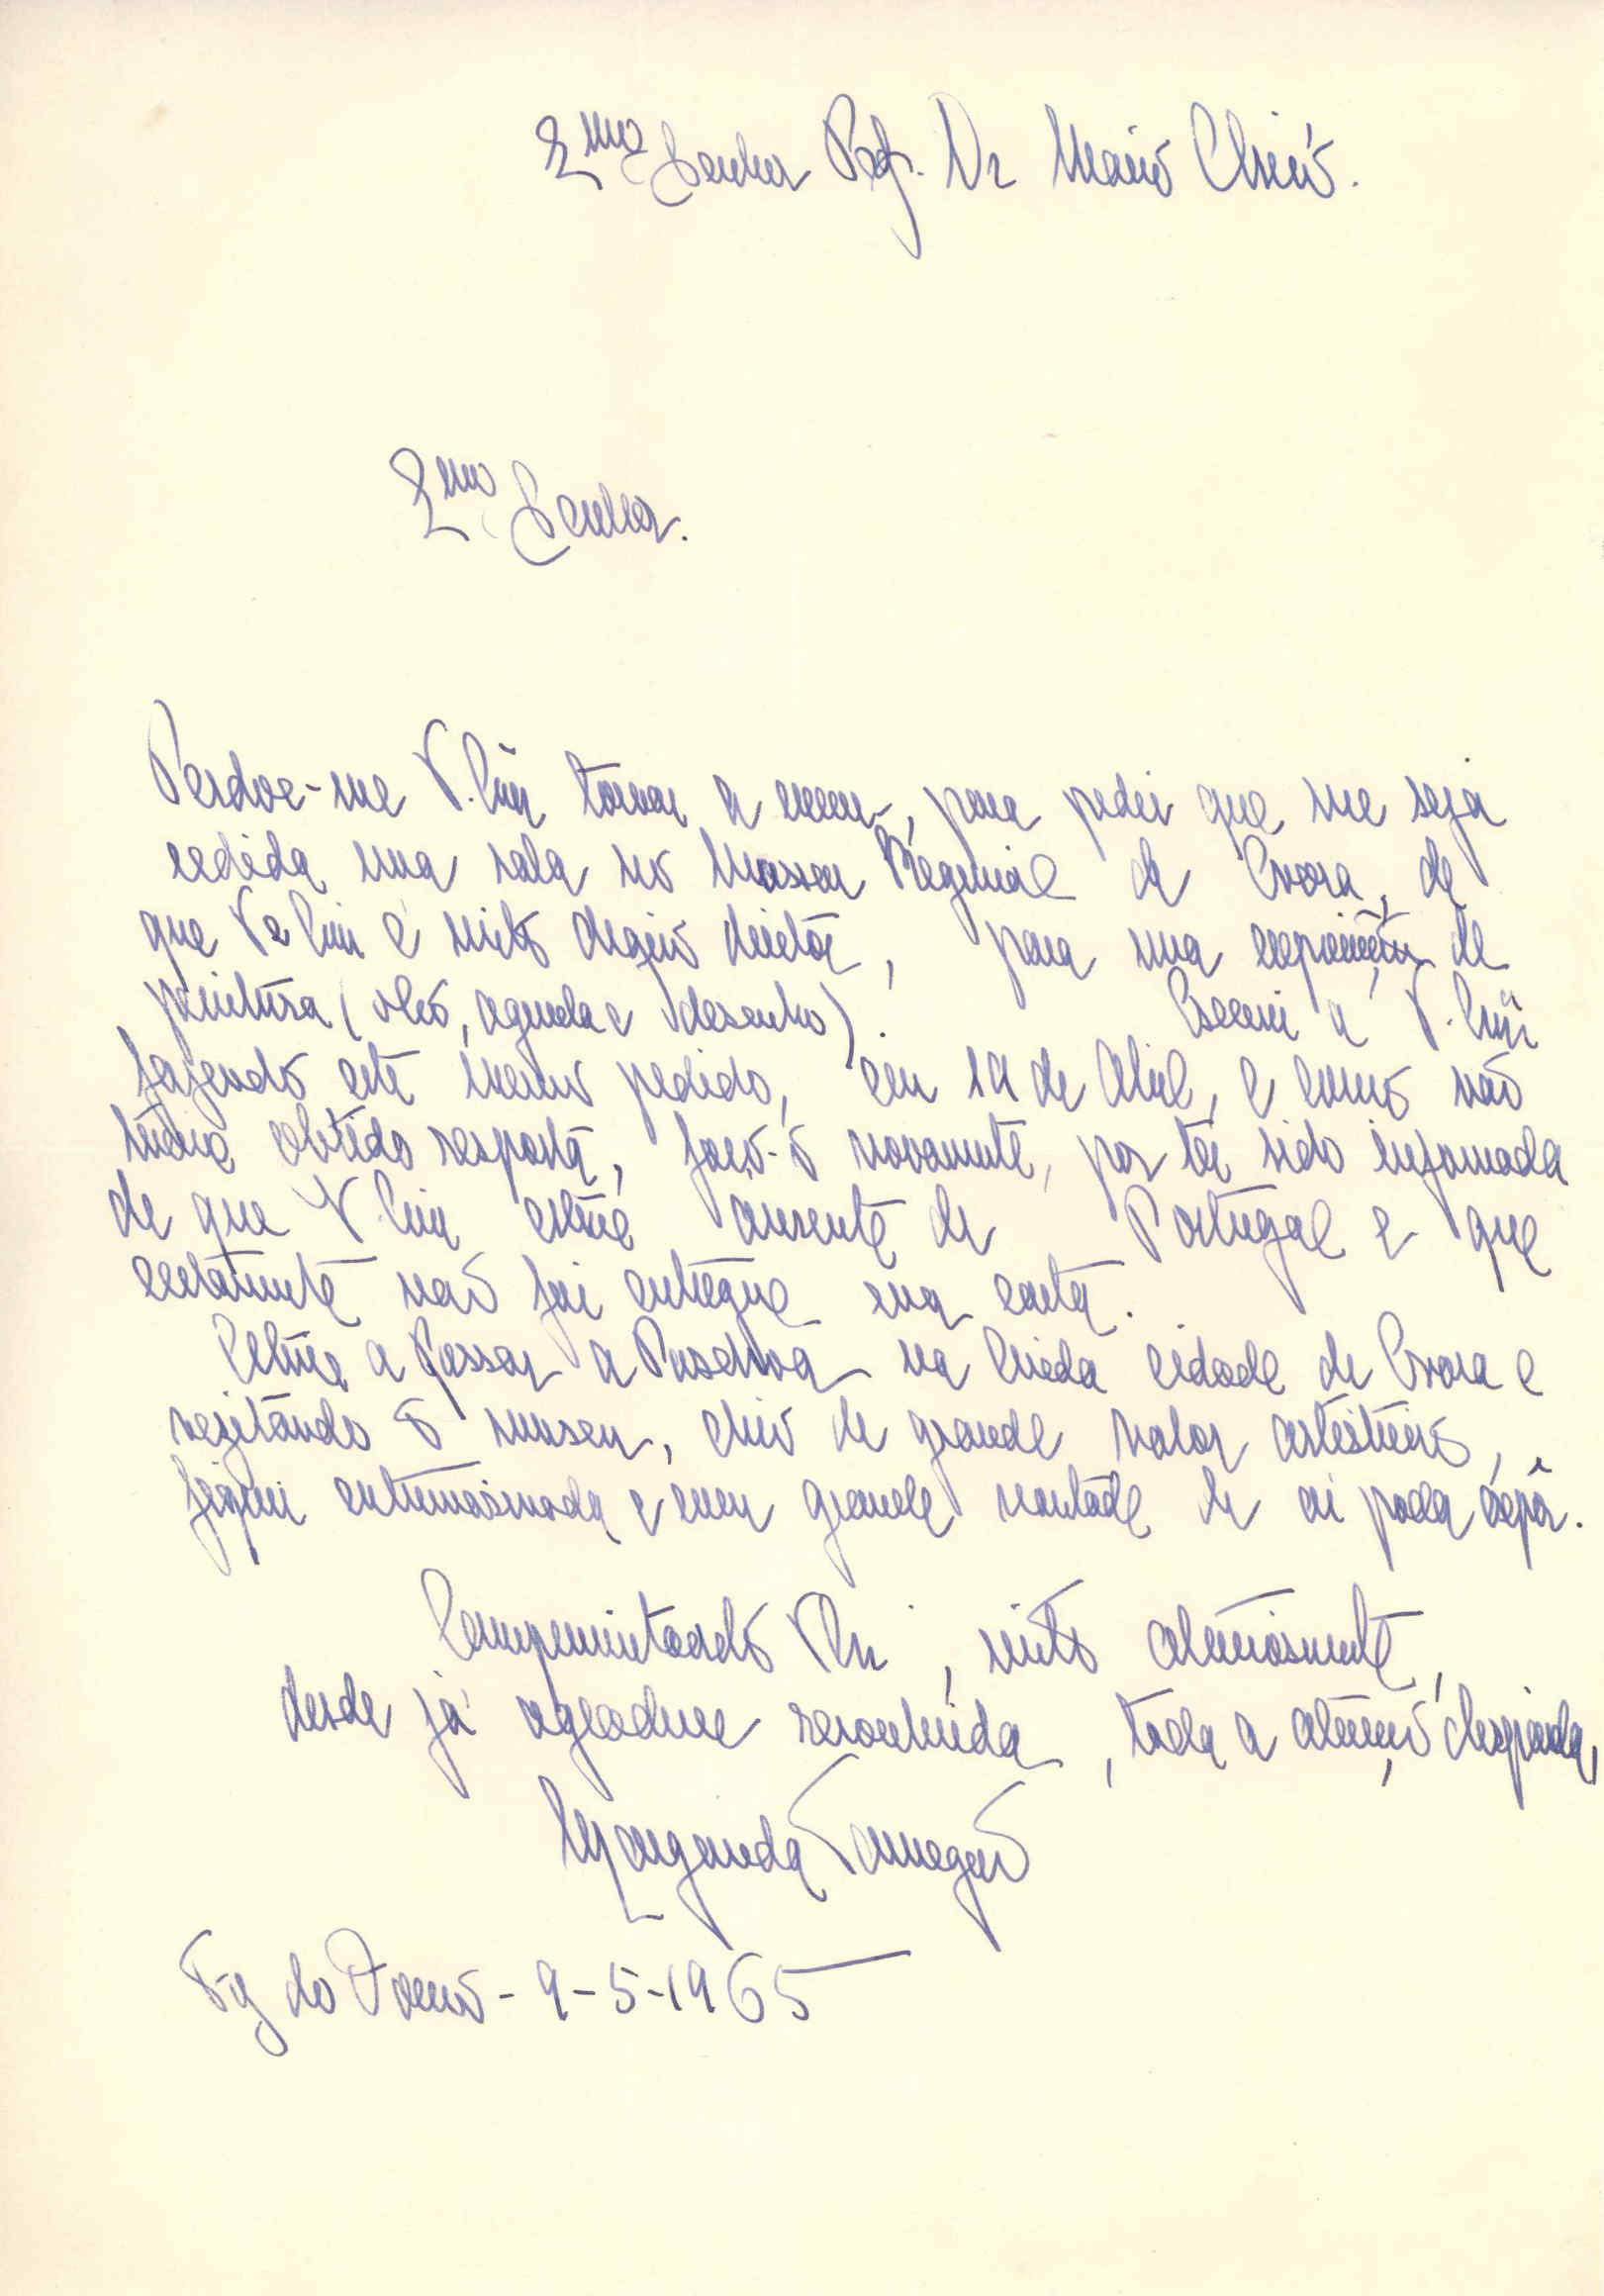 Exmo Senhor Prof. Dr Mário Chicó.
Exmo Senhor.
Perdoe-me V. Exa tornar a , para pedir que me seja
cedida uma sala no Museu Regional de Évora, de
que V. Exa é muito digno diretor, para uma exposição de
pintura (oleo, aguarela e desenho). Escrevi a V. Exa
fazendo este mesmo pedido, em 19 de Abril, e como não
tivesse obtido resposta, faço-o novamente, por ter sido informada
de que V. Exa esteve ausente de Portugal e que
certamente não foi entregue carta.
Estive a passar a Pascoa na linda cidade de Évora e
visitando o museu, cheio de grande valor artistico,
fiquei entusiasmada e com grande vontade de ai poder expôr.
Cumprimentando , muito atenciosamente,
desde já agradece reconhecida, toda a atenção dispensada,
Margarida Tamegão
Fig do Foz - 9-5-1965